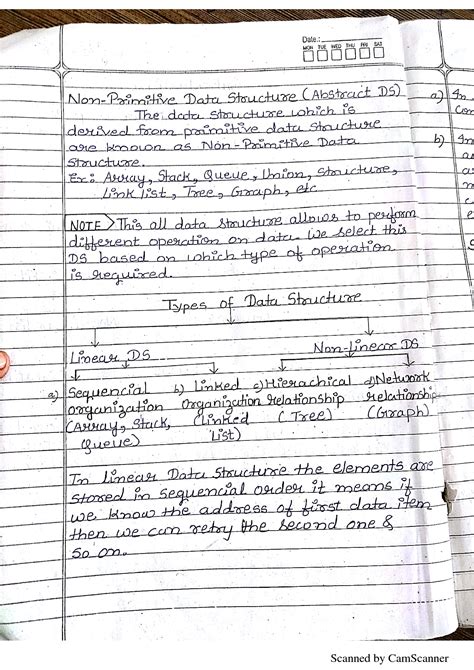 Date.:
MON TUE WED THU FRI SAT
Non-Primitive Data Structure (Abstract DS)
The data structure which is
derived from primitive data structure
are known as Non-Primitive Data
Structure.
Ex: Array, Stack, Queue, Union, Structure,
Link list, Tree, Graph, etc
NOTE This all data structure allows to perform
different operation on data. We select this
DS based on which type of operation
is required.
Types of Data Structure
Linear DS Non-Linear DS
a) Sequencial b) Linked c) Hierachical d) Network
organization Organization relationship relationship
(Array, Stack, (Linked (Tree) (Graph)
Queue) List)
In Linear Data Structure the elements are
stored in sequencial order it means if
we know the address of first data item
then we can retry the second one &
so on.
a) In
Con
b) In
Scanned by CamScanner